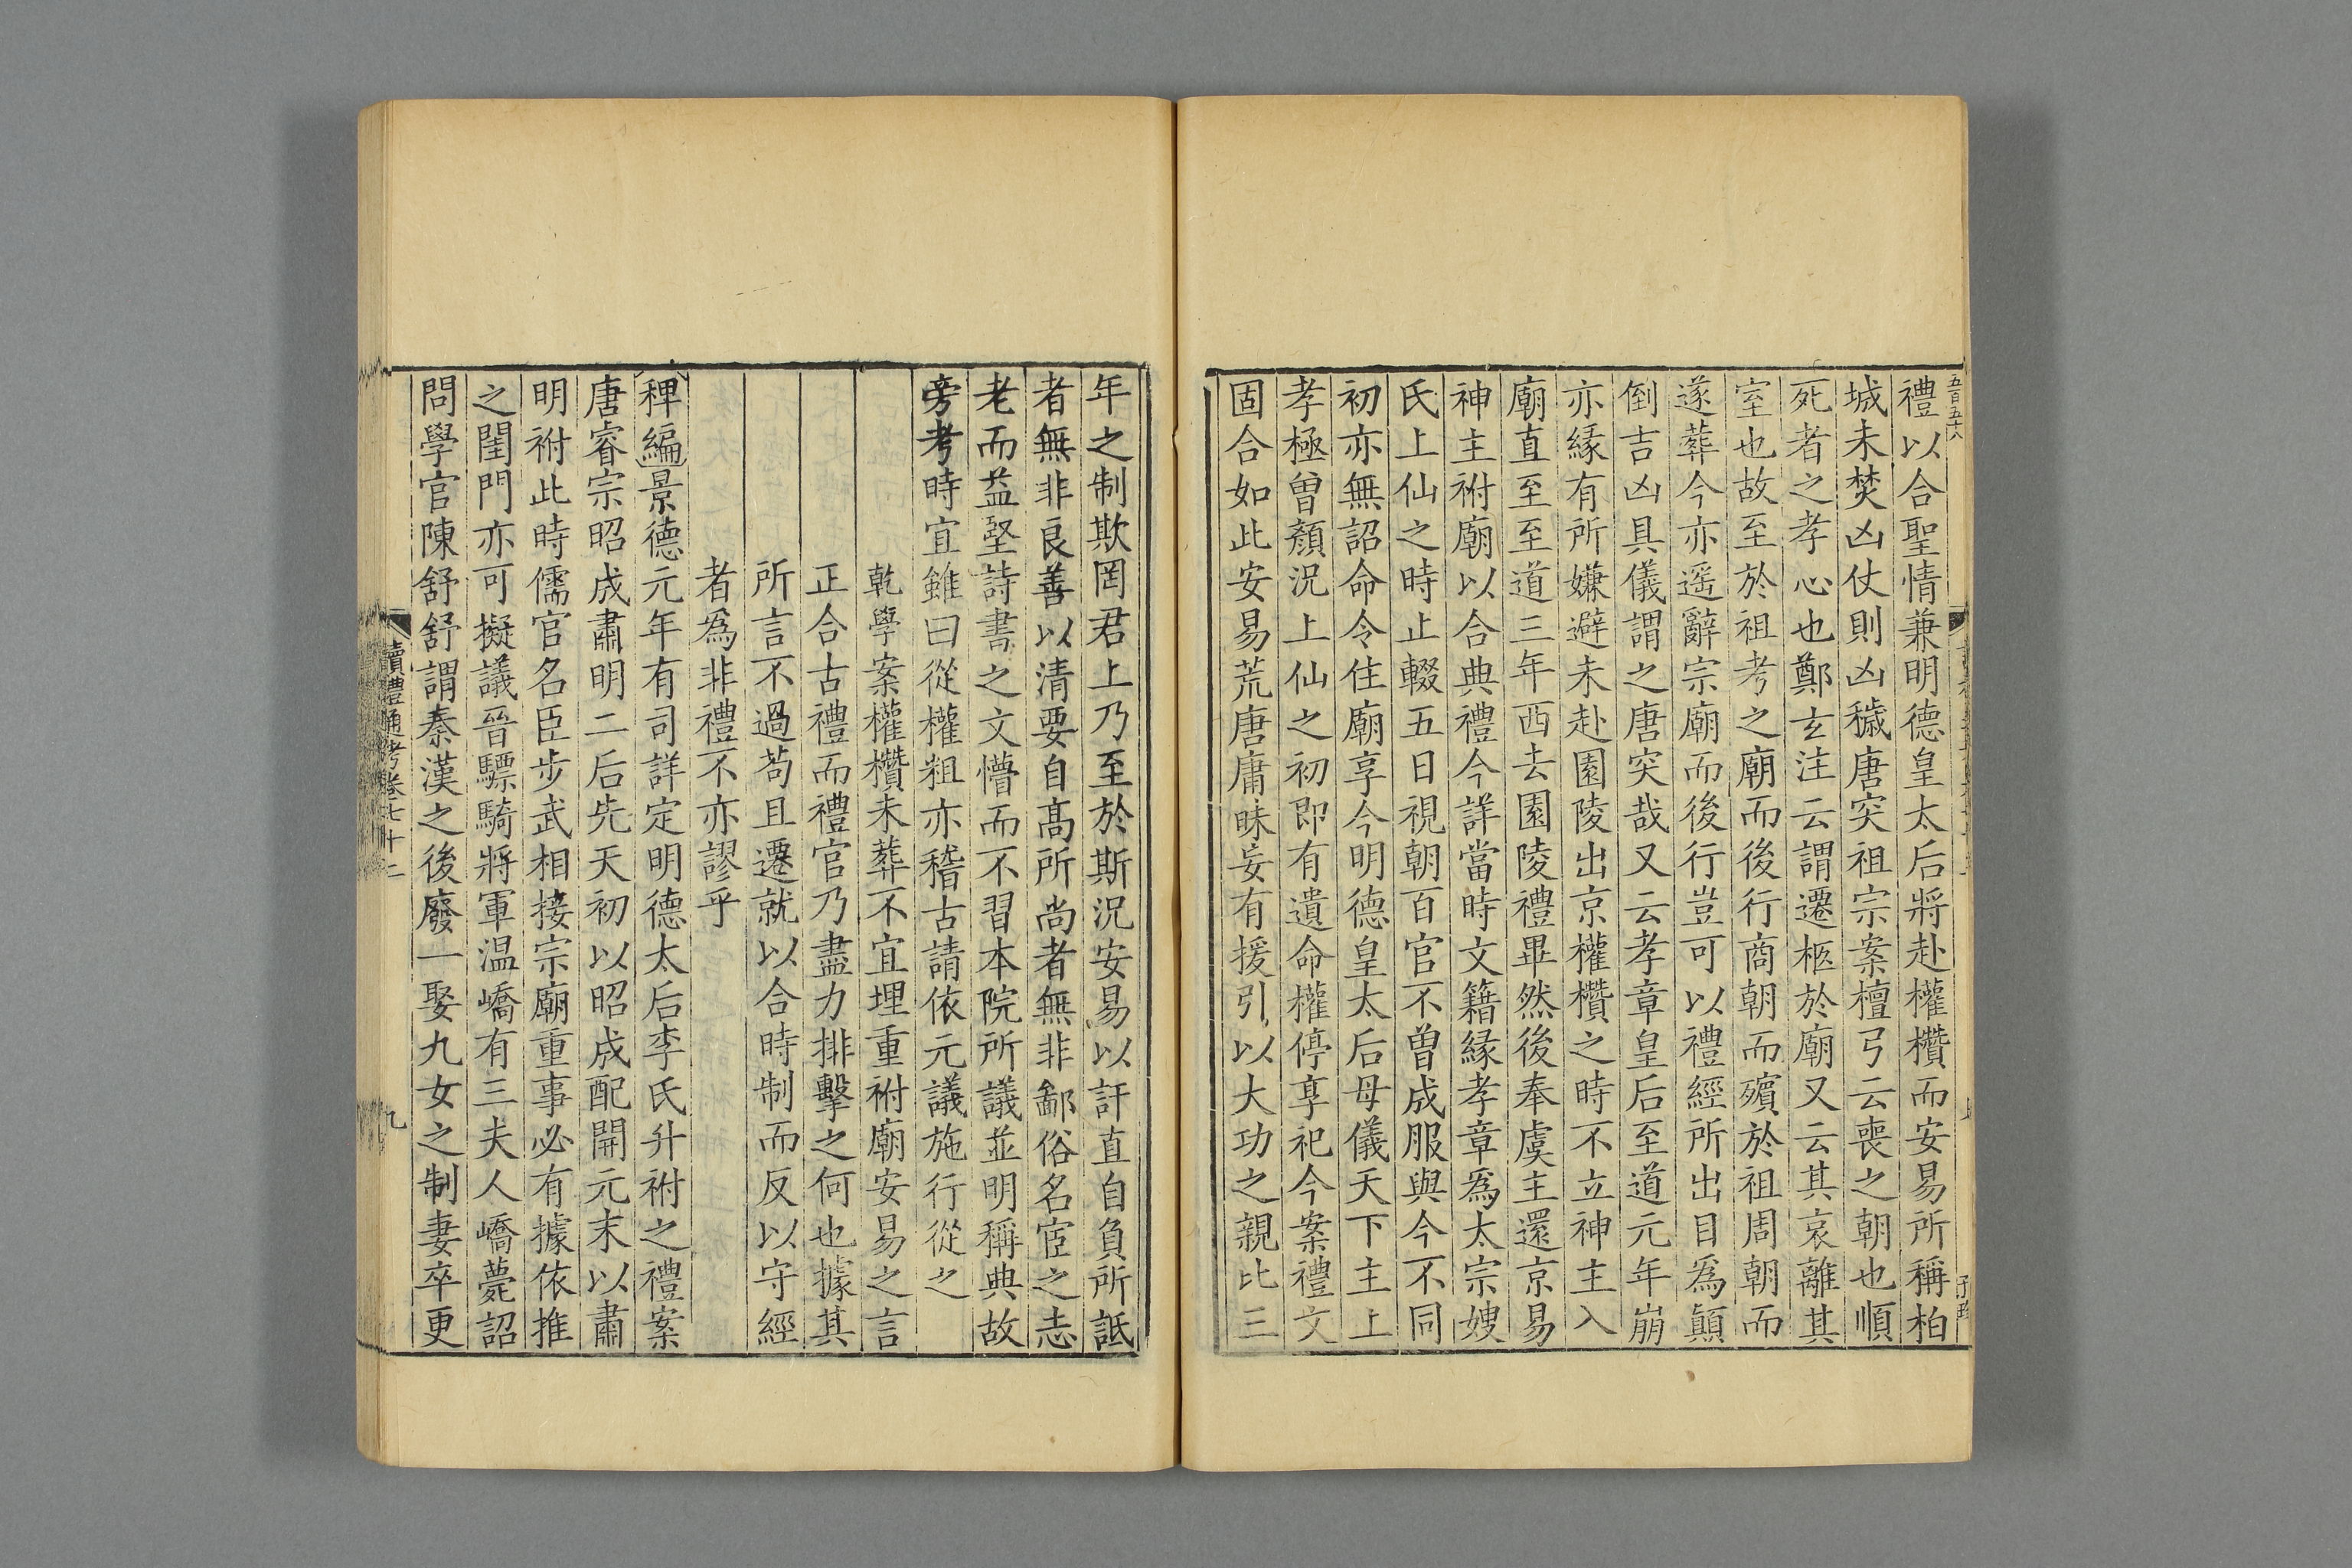 五百五十八
禮以合聖情兼明德皇太后將赴權欑而安易所稱柏
城未焚凶仗則凶穢唐突祖宗案檀弓云喪之朝也順
死者之孝心也鄭玄注云謂遷柩於廟又云其哀離其
室也故至於祖考之廟而後行商朝而殯於祖周朝而
遂葬今亦遥辭宗廟而後行豈可以禮經所出目爲顚
倒吉凶具儀謂之唐突哉又云孝章皇后至道元年崩
亦緣有所嫌避未赴園陵出京權欑之時不立神主入
廟直至至道三年西去園陵禮畢然後奉虞主還京易
神主祔廟以合典禮今詳當時文籍緣孝章爲太宗嫂
氏上仙之時止輟五日視朝百官不曾成服與今不同
初亦無詔命令住廟享今明德皇太后母儀天下主上
孝極曾顏況上仙之初即有遺命權停享祀今案禮文
固合如此安易荒唐庸昧妄有援引以大功之親比三
年之制欺罔君上乃至於斯況安易以訐直自負所詆
者無非良善以清要自高所尚者無非鄙俗名宦之志
老而益堅詩書之文懵而不習本院所議並明稱典故
旁考時宜雖曰從權粗亦稽古請依元議施行從之
乾學案權欑未葬不宜埋重祔廟安易之言
正合古禮而禮官乃盡力排擊之何也據其
所言不過苟且遷就以合時制而反以守經
者爲非禮不亦謬乎
稗編景德元年有司詳定明德太后李氏升祔之禮案
唐睿宗昭成肅明二后先天初以昭成配開元末以肅
明祔此時儒官名臣步武相接宗廟重事必有據依推
之閨門亦可擬議晉驃騎將軍温嶠有三夫人嶠薨詔
問學官陳舒舒謂秦漢之後廢一娶九女之制妻卒更
讀禮通考卷七十二
九